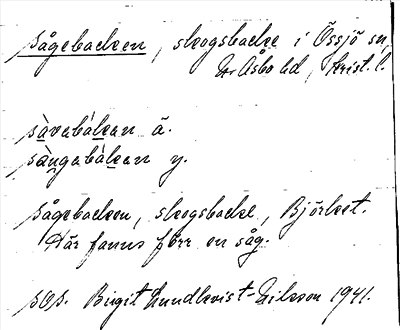 Sågebacken, skogsbacke i Össjö sn,
N. Åsbo hd, Krist. l.
sàvabàkan ä.
sàŋgabàkan y.
Sågebacken, skogsbacke, Björket.
Här fanns förr en såg.
Birgit Lundkvist-Nilsson 1941.